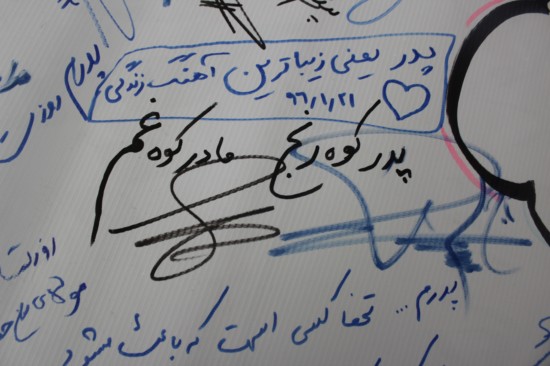 پدر یعنی زیباترین آهنگ زندگی
۹۶/۱/۲۱
پدرم
روزت
پدر کوه رنج مادر کوه غم
پدرم... تنها کسی است که باعث میشود